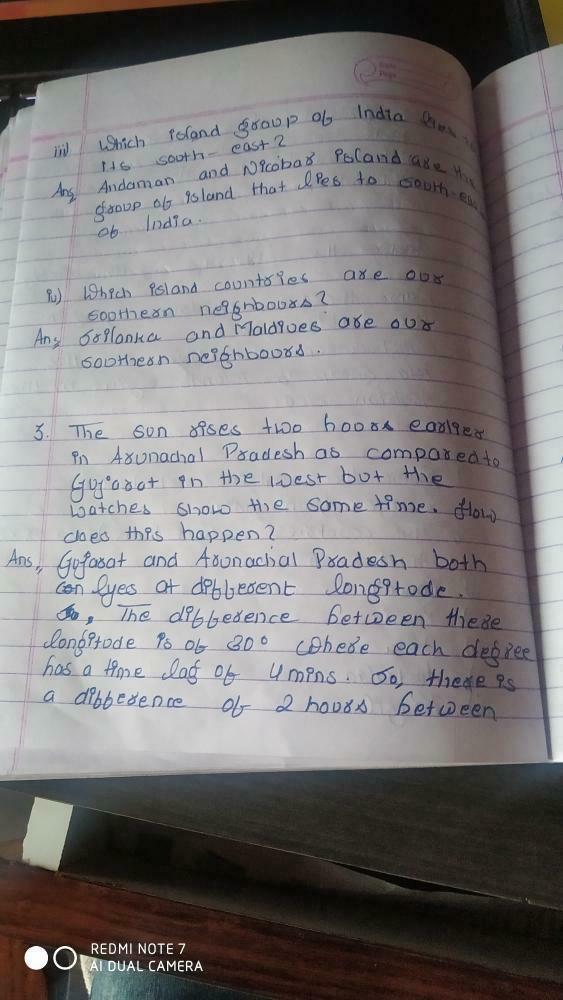 Date
Page
iii) Which island group of India lies to
its south-east?
Ans Andaman and Nicobar island are the
group of island that lies to south-eas
of India.
iv) Which island countries are our
southern neighbours?
Ans Srilanka and Maldives are our
southern neighbours.
3. The sun rises two hours earlier
in Arunachal Pradesh as compared to
Gujarat in the west but the
watches show the same time. How
does this happen?
Ans, Gujarat and Arunachal Pradesh both
lyes at different longitude.
The difference between these
longitude is of 30° where each degree
has a time lag of 4 mins. So, there is
a difference of 2 hours between
REDMI NOTE 7
AI DUAL CAMERA